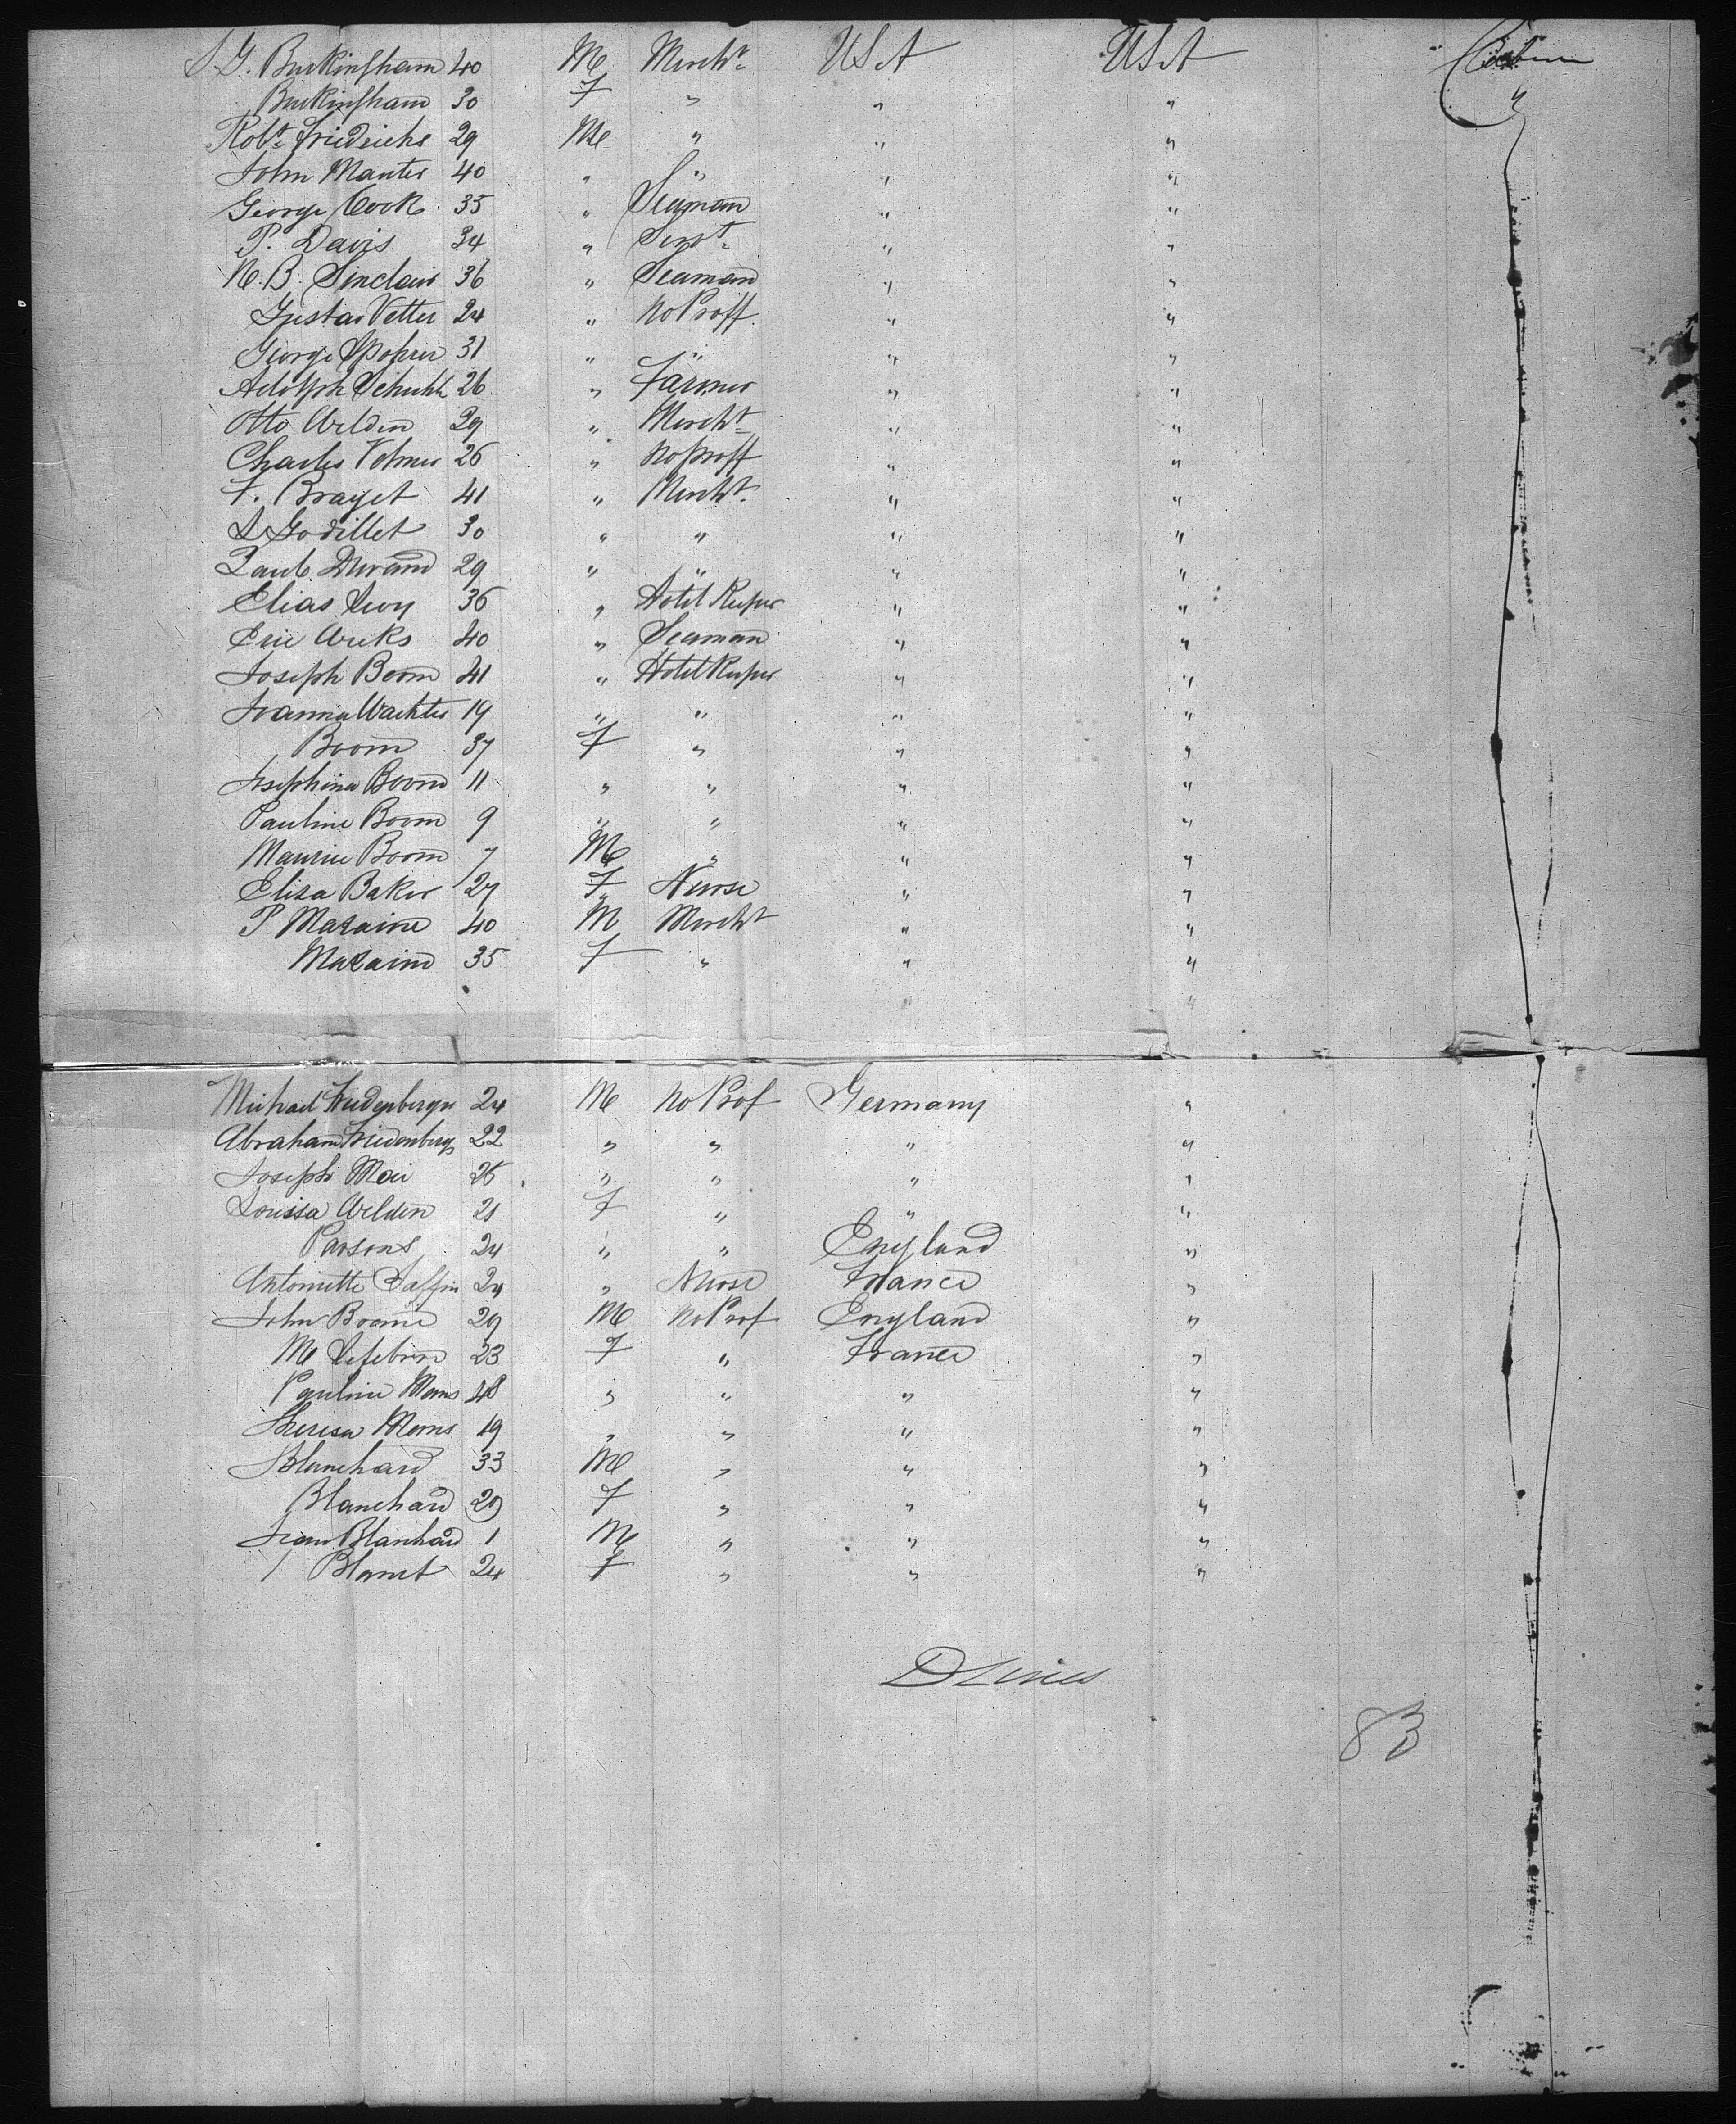 S. G. Burkinsham 40 M Mercht. USA USA Cabin
Burkinsham 30 F " " " "
Robt. Friedrichs 29 M " " "
John Manter 40 " " " "
George Cook 35 " Seaman " "
P. Davis 34 " Servt. " "
N. B. Sinclair 36 " Seaman " "
Gustav Vetter 24 " No Proff. " "
George Spohrer 31 " " " "
Adolph 26 " Farmer " "
Otto Welden 29 " Mercht. " "
Charles Volmer 26 " No proff " "
F. Braget 41 " Mercht. " "
L Godillet 30 " " " "
Paul Durand 29 " " " "
Elias Levy 36 " Hotel Keeper " "
Eric Weeks 40 " Seaman " "
Joseph Boom 41 " Hotel Keeper " "
Wachter 19 " " " "
Boom 37 F " " "
Josephine Boom 11 " " " "
Pauline Boom 9 " " " "
Maurice Boom 7 M " " "
Eliza Baker 27 F Nurse " "
P Mazaine 40 M Mercht " "
Mazaine 35 F " " "
" "
Michael Friedenberger 24 M No Prof Germany "
Abraham Friedenberg 22 " " " "
Joseph Mai 25 " " " "
Louissa Welden 21 F " " "
Parsons 24 " " England "
Antoinette 24 " Nurse France "
John Boome 29 M No Prof England "
M Lefebvre 23 F " France "
Pauline Mons 48 " " " "
Theresa Mons 19 " " " "
Blanchard 33 M " " "
Blanchard 29 F " " "
Jean Blanhard 1 M " " "
Blanct 24 F " " "
83